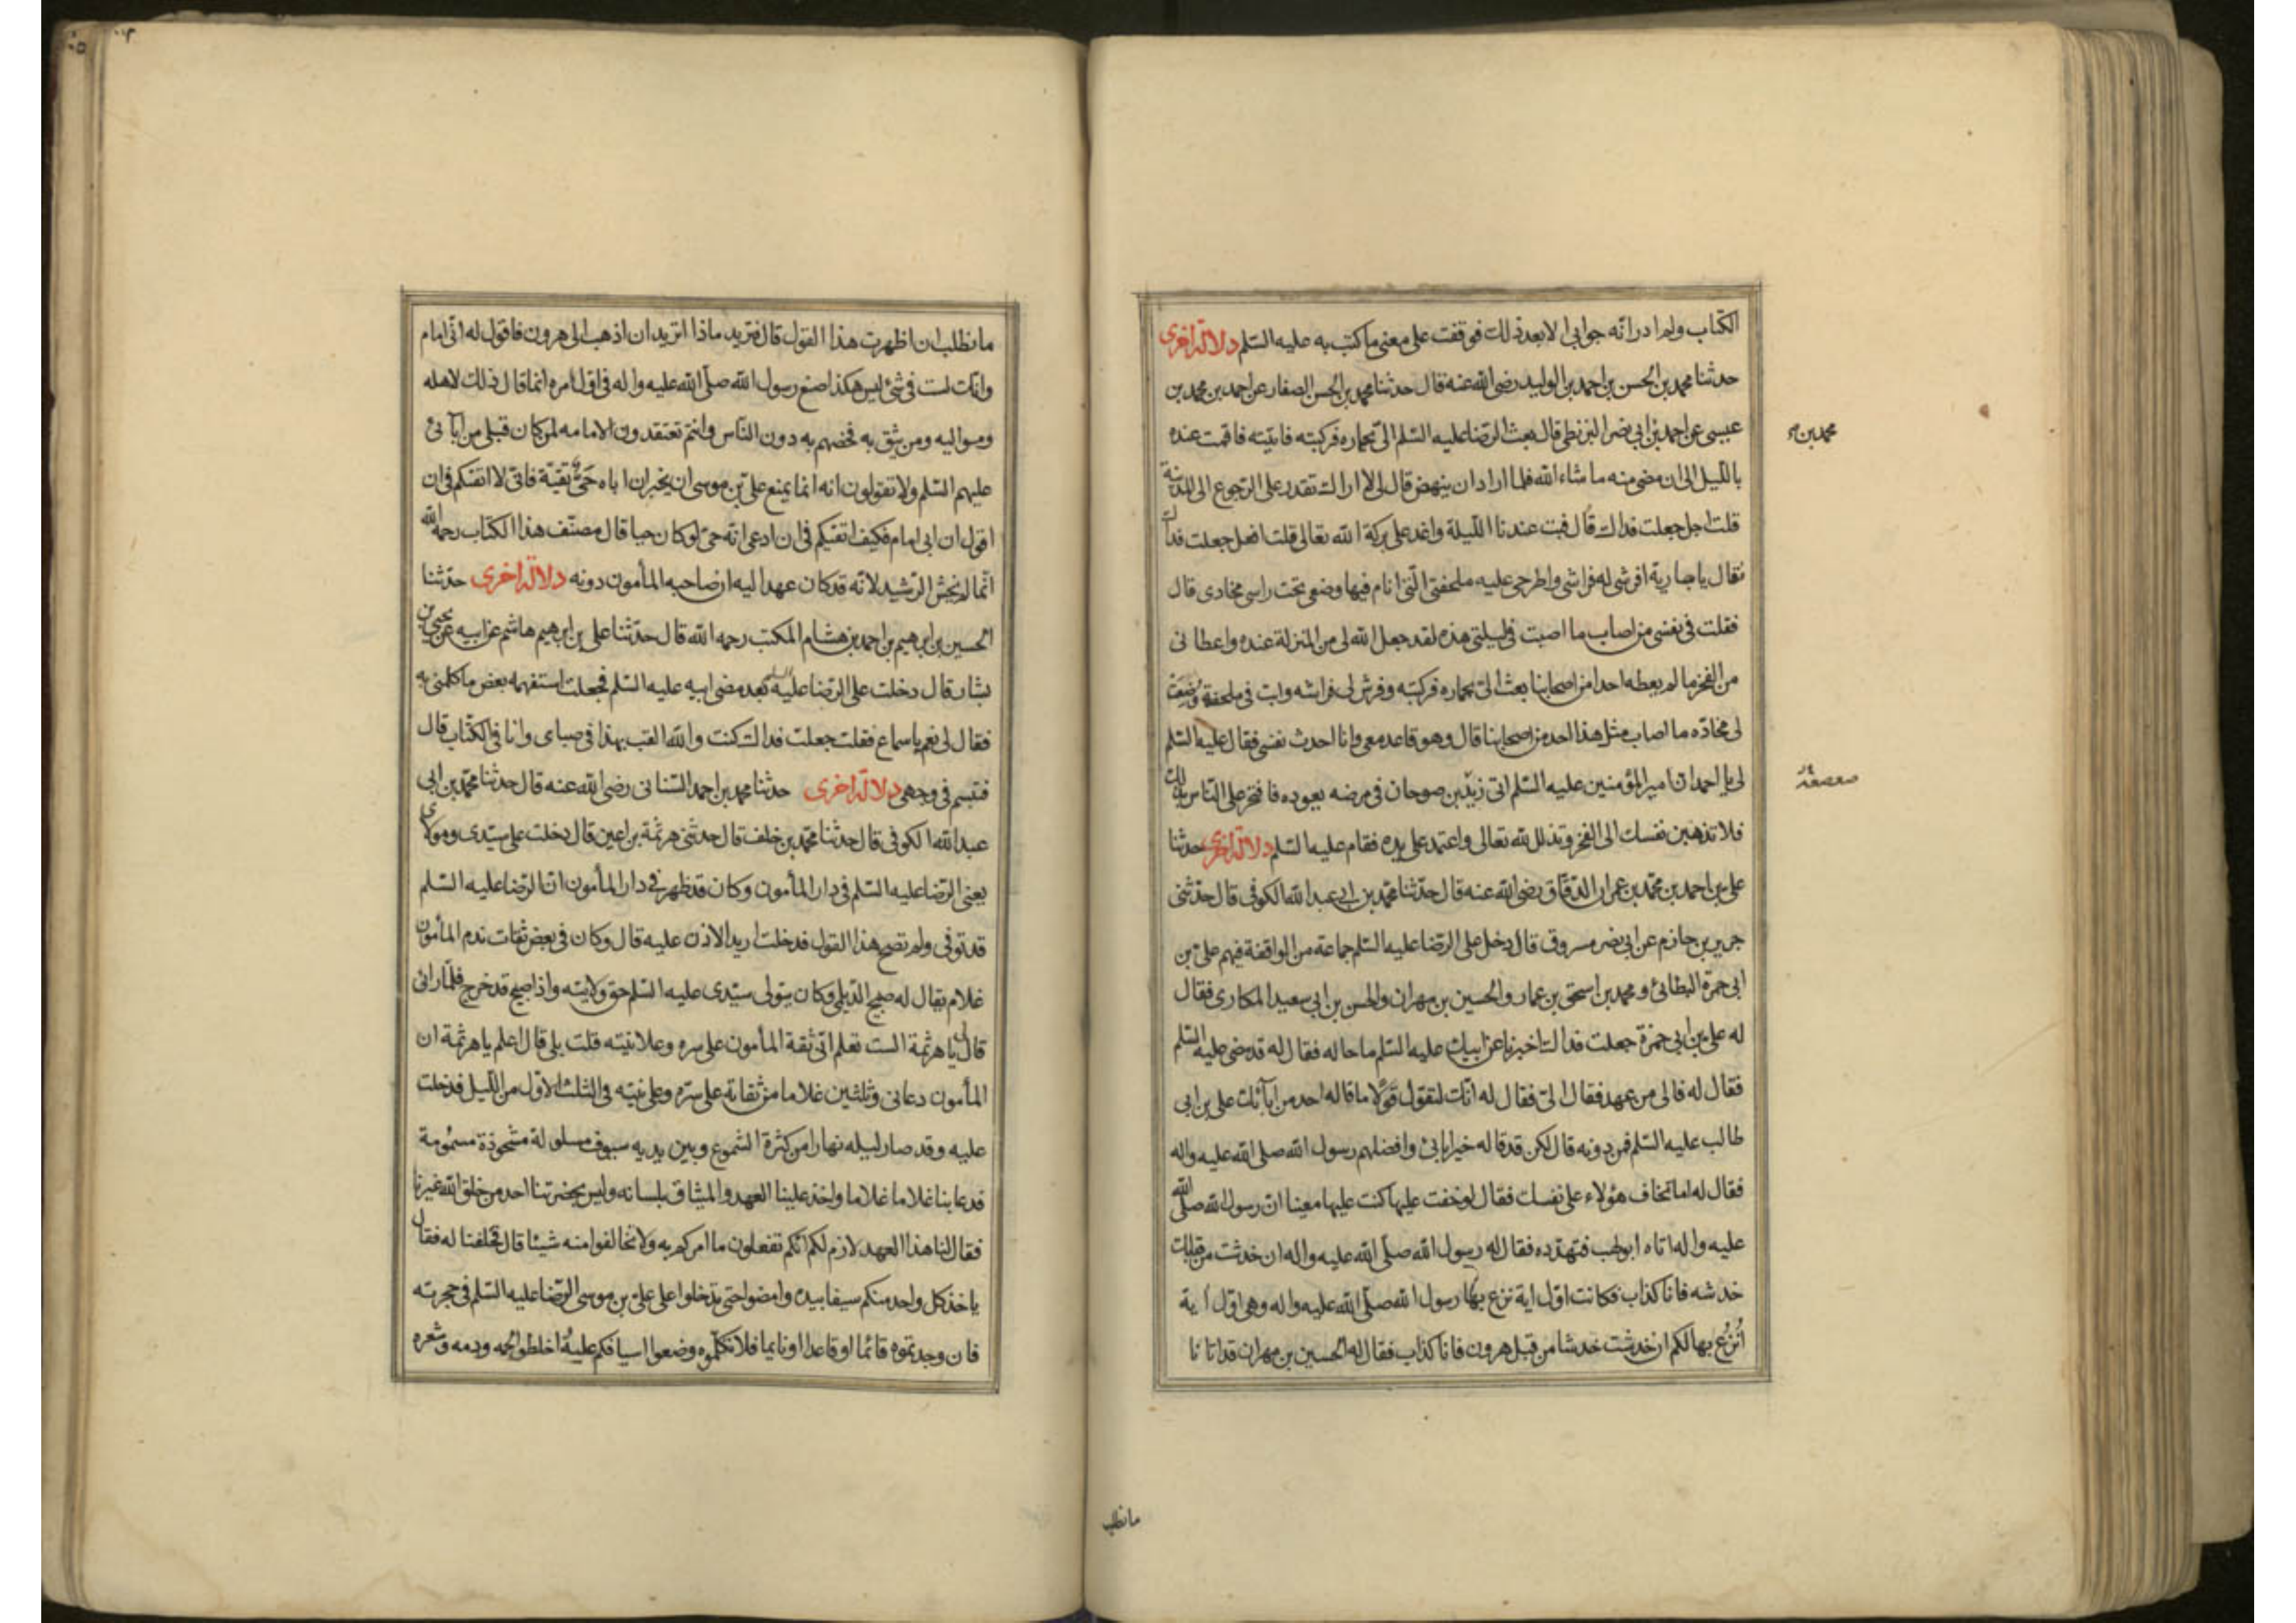 الكتاب ولم ادر انه جوابى الا بعد ذلك فوقفت على معنى ما كتب به عليه السّلم دلالة اخرى
حدثنا محمد بن الحسن بن احمد بن الوليد رضى الله عنه قال حدثنا محمد بن الحسن الصفار عن احمد بن محمد بن
عيسى عن احمد بن ابى نصر البزنطى قال بعث الرّضا عليه السّلم الىّ بحماره فركبته فاتيته فاقمت عنده
محمد بن
باللّيل الى ان مضى منه ما شاء الله فلما اراد ان ينهض قال لى لا اراك تقدر على الرّجوع الى المدينة
قلت اجل جعلت فداك قال فبت عندنا اللّيلة واغد على بركة الله تعالى قلت افعل جعلت فداك
فقال يا جارية افرشى له فراشى واطرحى عليه ملحفتى الّتى انام فيها وضعى تحت راسى مخادى قال
فقلت فى نفسى من اصاب ما اصبت فى ليلتى هذه لقد جعل الله لى من المنزلة عنده واعطانى
من الفخر ما لم يعطه احدا من اصحابنا بعث الىّ بحماره فركبته وفرش لى فراشه وبت فى ملحفة ووضعت
لى مخادّه ما اصاب مثل هذا احد من اصحابنا قال وهو قاعد معى وانا احدث نفسى فقال عليه السّلم
لى يا احمد ان امير المؤمنين عليه السّلم اتى زيد بن صوحان فى مرضه يعوده فافتخر على النّاس بذلك
صعصعة
فلا تذهبن نفسك الى الفخر وتذلل لله تعالى واعتمد على يده فقام عليه السّلم دلالة اخرى حدثنا
على بن احمد بن محمّد بن عمران الدّقاق رضى الله عنه قال حدّثنا محمّد بن ابى عبد الله الكوفى قال حدّثنى
جرير بن حازم عن ابى نصر مسروق قال دخل على الرّضا عليه السّلم جماعة من الواقفة فيهم علىّ بن
ابى حمزة البطائنى و محمد بن اسحق بن عمار والحسين بن مهران والحسن بن ابى سعيد المكارى فقال
له على بن ابى حمزة جعلت فداك اخبرنا عن ابيك عليه السّلم ما حاله فقال له قد مضى عليه السّلم
فقال له فالى من عهد فقال الىّ فقال له انّك لتقول قولا ما قاله احد من آبائك على بن ابى
طالب عليه السّلم فمن دونه قال لكن قد قاله خير ابائى وافضلهم رسول الله صلى الله عليه واله
فقال له اما تخاف هؤلاء على نفسك فقال لو خفت عليها كنت عليها معينا ان رسول الله صلّى الله
عليه واله اتاه ابو لهب فتهدّده فقال له رسول الله صلّى الله عليه واله ان خدشت من قبلك
خدشه فانا كذاب فكانت اوّل اية نزع بها رسول الله صلّى الله عليه واله وهى اوّل اية
أنزع بها لكم ان خدشت خدشا من قبل هرون فانا كذاب فقال له الحسين بن مهران قد اتانا
ما نطلب
ما نطلب ان اظهرت هذا القول قال فتريد ماذا اتريد ان اذهب الى هرون فاقول له انّى امام
وانك لست فى شئ ليس هكذا صنع رسول الله صلّى الله عليه واله فى اوّل امره انما قال ذلك لاهله
ومواليه ومن يثق به فخصهم به دون النّاس وانتم تعتقدون الامامه لمن كان قبلى من آبائى
عليهم السّلم ولا تقولون انه انما يمنع علىّ بن موسى ان يخبر ان اباه حَىّ تقيّة فانّى لا اتقيكم فى ان
اقول ان ابى امام فكيف اتقيكم فى ان ادعى انّه حىّ لو كان حيا قال مصنّف هذا الكتاب رحمه الله
انّما لم يخش الرّشيد لانّه قد كان عهد اليه ان صاحبه المأمون دونه دلالة اخرى حدّثنا
الحسين بن ابرهيم بن احمد بن هشام المكتب رحمه الله قال حدّثنا على بن ابرهيم هاشم عن ابيه عن يحيى بن
بشار قال دخلت على الرّضا عليه السلم بعد مضى ابيه عليه السّلم فجعلت استفهمه بعض ما كلمنى به
فقال لى نعم يا سماع فقلت جعلت فداك كنت والله القب بهذا فى صباى وانا فى الكتّاب قال
فتبسم فى وجهى دلالة اخرى حدثنا محمد بن احمد السّنانى رضى الله عنه قال حدثنا محمّد بن ابى
عبد الله الكوفى قال حدثنا محمّد بن خلف قال حدثنى هرثمة بن اعين قال دخلت على سيّدى ومولاى
يعنى الرّضا عليه السّلم فى دار المأمون وكان قد ظهر فى دار المأمون انّ الرّضا عليه السّلم
قد توفى ولم تصح هذا القول فدخلت اريد الاذن عليه قال وكان فى بعض ثقات خدم المأمون
غلام يقال له صبيح الدّيلى وكان يتولى سيّدى عليه السّلم حق ولايته واذا صبيح قد خرج فلمّا رانى
قال لى يا هرثمة الست تعلم انّى ثقة المأمون على سره وعلانيته قلت بلى قال اعلم يا هرثمة ان
المأمون دعانى وثلثين غلاما من ثقاته على سرّه وعلانيته فى الثلث الاوّل من اللّيل فدخلت
عليه وقد صار ليله نهارا من كثرة الشموع وبين يديه سيوف مسلولة مشحوذة مسمُومة
فدعا بنا غلاما غلاما واخذ علينا العهد والميثاق بلسانه وليس بحضرتنا احد من خلق الله غيرنا
فقال لنا هذا العهد لازم لكم انّكم تفعلون ما امركم به ولا تخالفوا منه شيئا قال فحلفنا له فقال
ياخذ كل واحد منكم سيفا بيده وامضوا حتى تدخلوا على علىّ بن موسى الرّضا عليه السّلم فى حجرته
فان وجدتموه قائما او قاعدا او نايما فلا تكلّموه وضعوا اسيافكم عليهُ اخلطوا لحمه ودمه وشعره